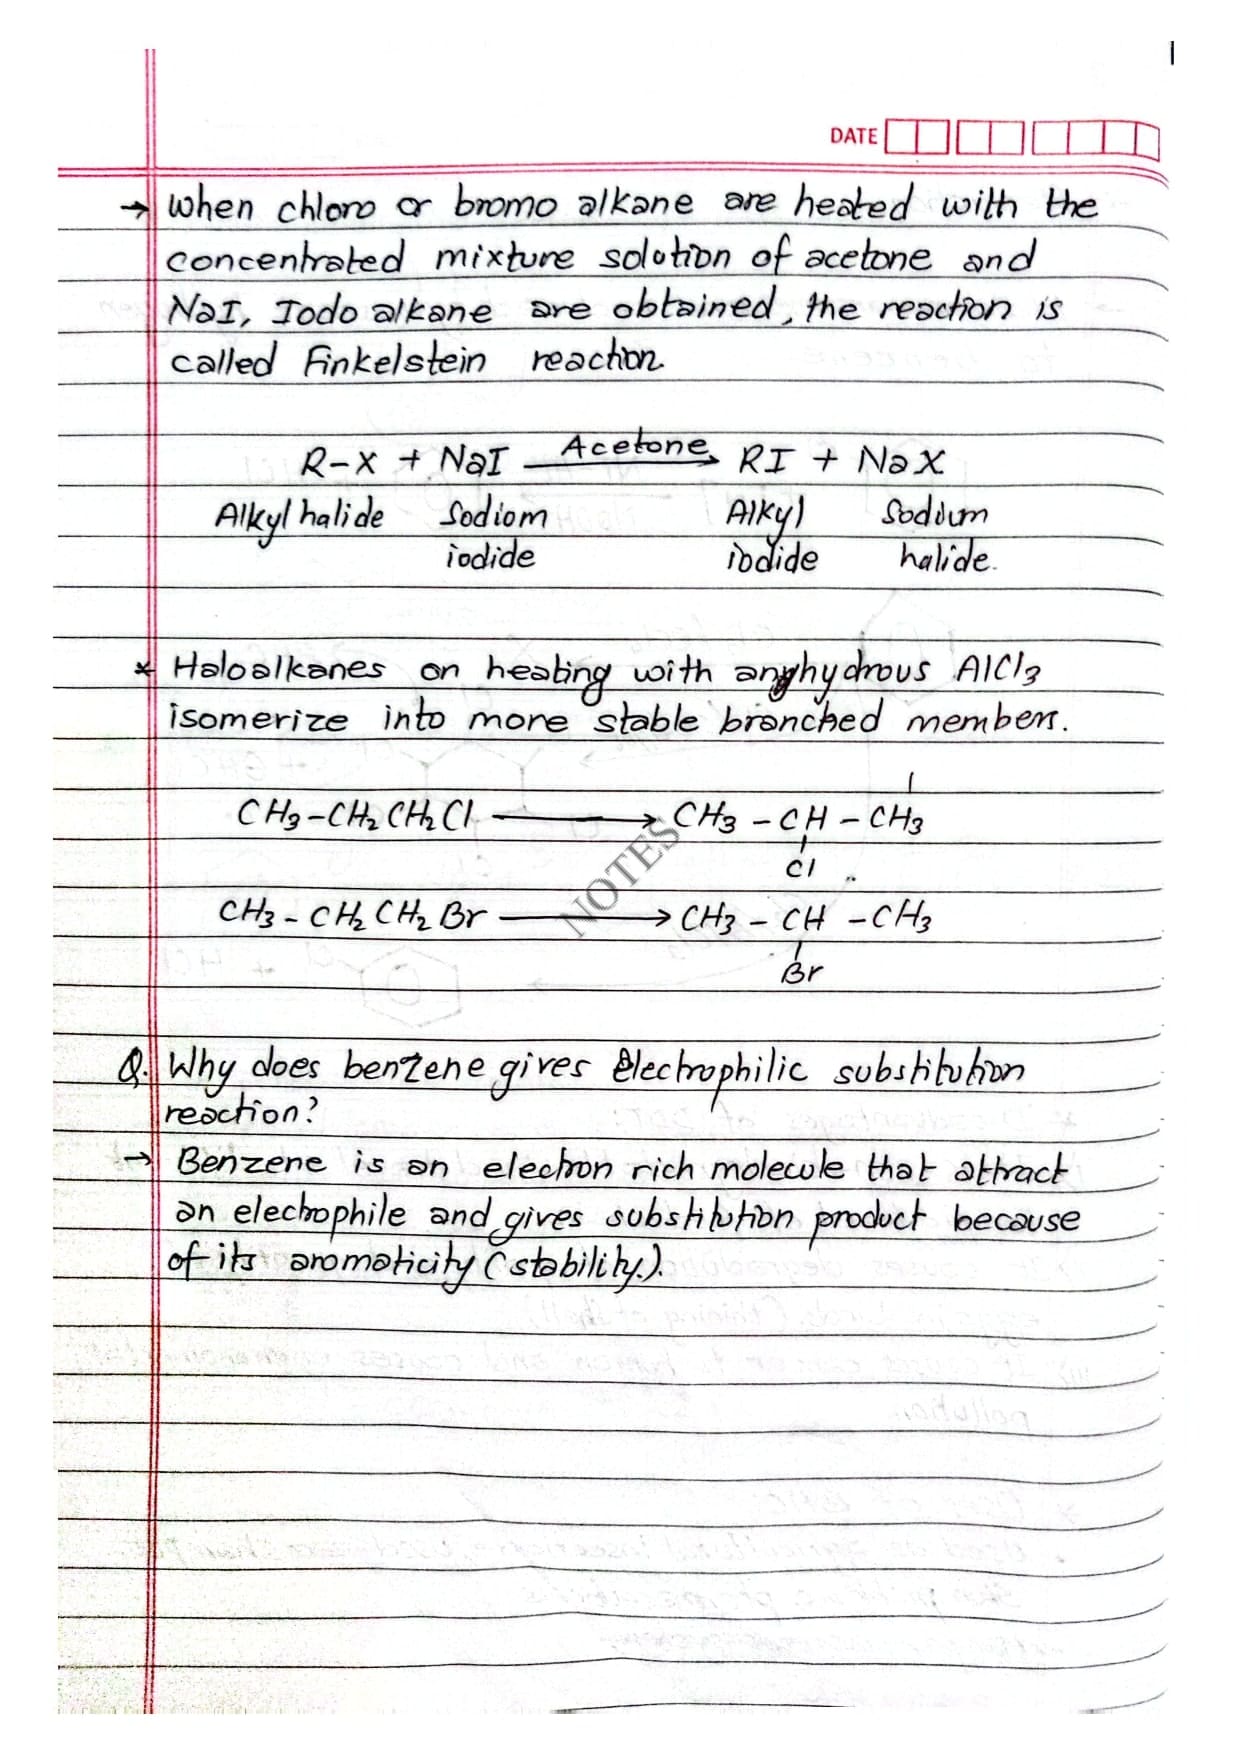 1
DATE
→ When chloro or bromo alkane are heated with the
concentrated mixture solution of acetone and
NaI, Iodo alkane are obtained, the reaction is
called Finkelstein reaction.
R-X + NaI —Acetone→ RI + NaX
Alkyl halide Sodiom Alkyl Sodium
iodide iodide halide.
* Haloalkanes on heating with anhydrous AlCl3
isomerize into more stable branched members.
CH3-CH2CH2Cl ⟶ CH3-CH-CH3
Cl
NOTES
CH3-CH2CH2Br ⟶ CH3-CH-CH3
Br
Q. Why does benzene gives Electrophilic substitution
reaction?
→ Benzene is an electron rich molecule that attract
an electrophile and gives substitution product because
of its aromaticity (stability.).